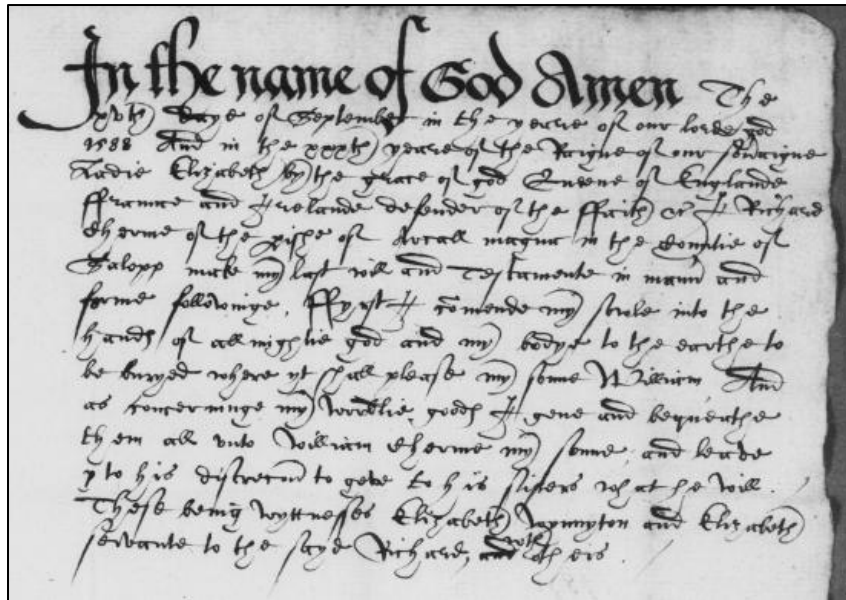 In the name of God Amen The
xvth daye of September in the yeare of our lorde god
1588 And in the xxxth yeare of the Raigne of our soveraigne
Ladie Elizabeth by the grace of god Queene of Englande
ffraunce and Irelande defender of the ffaith &c I Richard
Cherme of the pishe of Arcall magna in the Countie of
Salopp make my last will and Testamente in mann and
forme followinge, ffyrst I comende my soole into the
hands of allmightie god and my bodye to the earthe to
be buryed where yt shall please my sonne William And
as concerninge my worldlie goods I geve and bequeathe
them all unto William Cherme my sonne, and leave
yt to his discrecon to geve to his sisters what he will.
These being wyttnesses Elizabeth and Elizabeth
servante to the sayd Richard, with others.